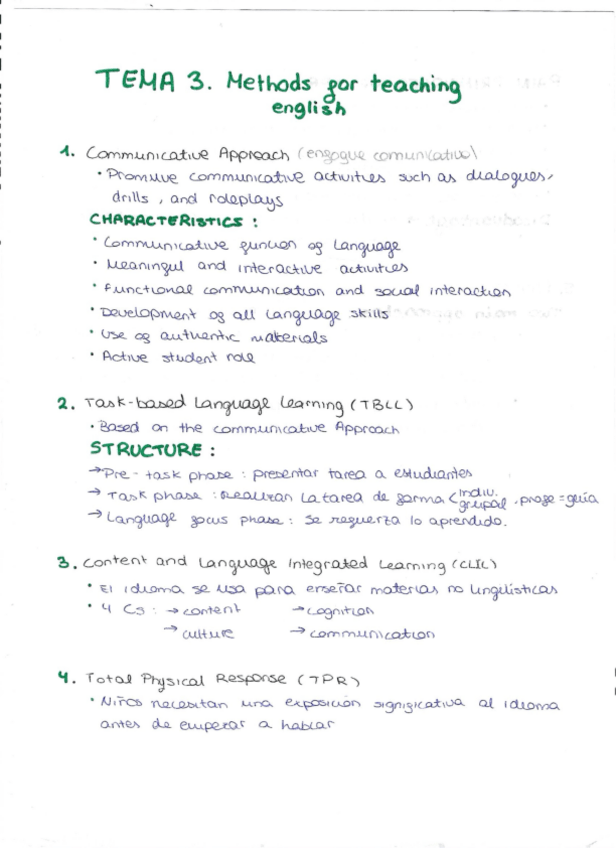 TEMA 3. Methods for teaching
english
1. Communicative Approach (enfoque comunicativo)
• Promuve communicative activities such as dialogues,
drills, and roleplays
CHARACTERISTICS:
• Communicative funcion of language
• Meaningul and interactive activities
• Functional communication and social interaction
• Development of all language skills
• Use of authentic materials
• Active student role
2. Task-based Language Learning (TBLL)
• Based on the communicative Approach
STRUCTURE:
→ Pre-task phase: presentar tarea a estudiantes
→ Task phase: Realizan la tarea de forma < indiv. grupal. profe = guía
→ Language focus phase: Se refuerza lo aprendido.
3. Content and Language Integrated Learning (CLIL)
• El idioma se usa para enseñar materias no lingüísticas
• 4 Cs: → content → cognition
→ culture → communication
4. Total Physical Response (TPR)
• Niños necesitan una exposición significativa al idioma
antes de empezar a hablar